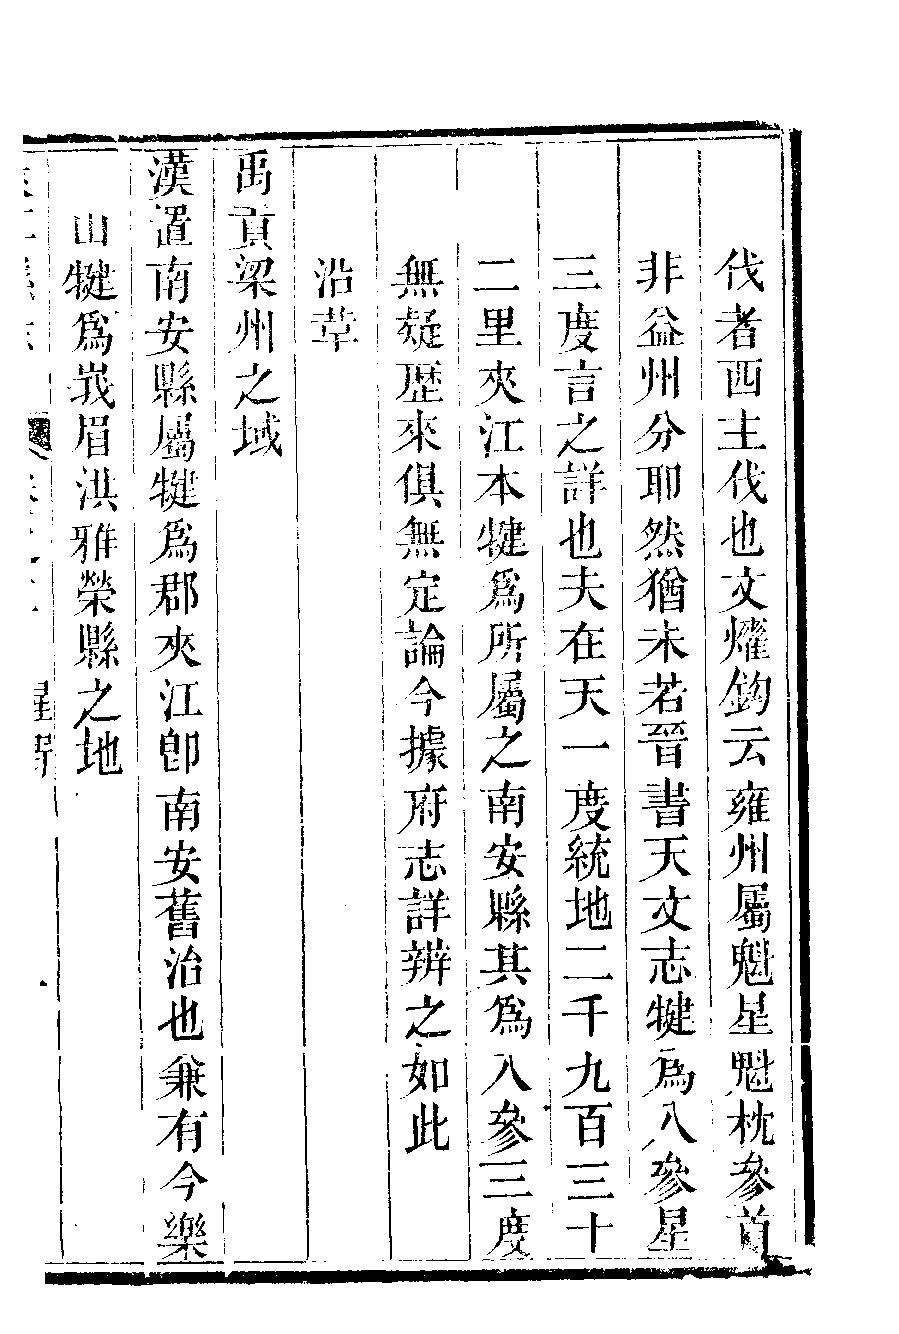 伐者西主伐也文燿鈎云雍州屬魁星魁枕參首
非益州分耶然猶未若晉書天文志犍爲入參星
三度言之詳也夫在天一度統地二千九百三十
二里夾江本犍爲所屬之南安縣其爲入參三度
無疑歴來俱無定論今據府志詳辨之如此
沿革
禹貢梁州之域
漢置南安縣屬犍爲郡夾江卽南安舊治也兼有今樂
山犍爲峩眉洪雅榮縣之地